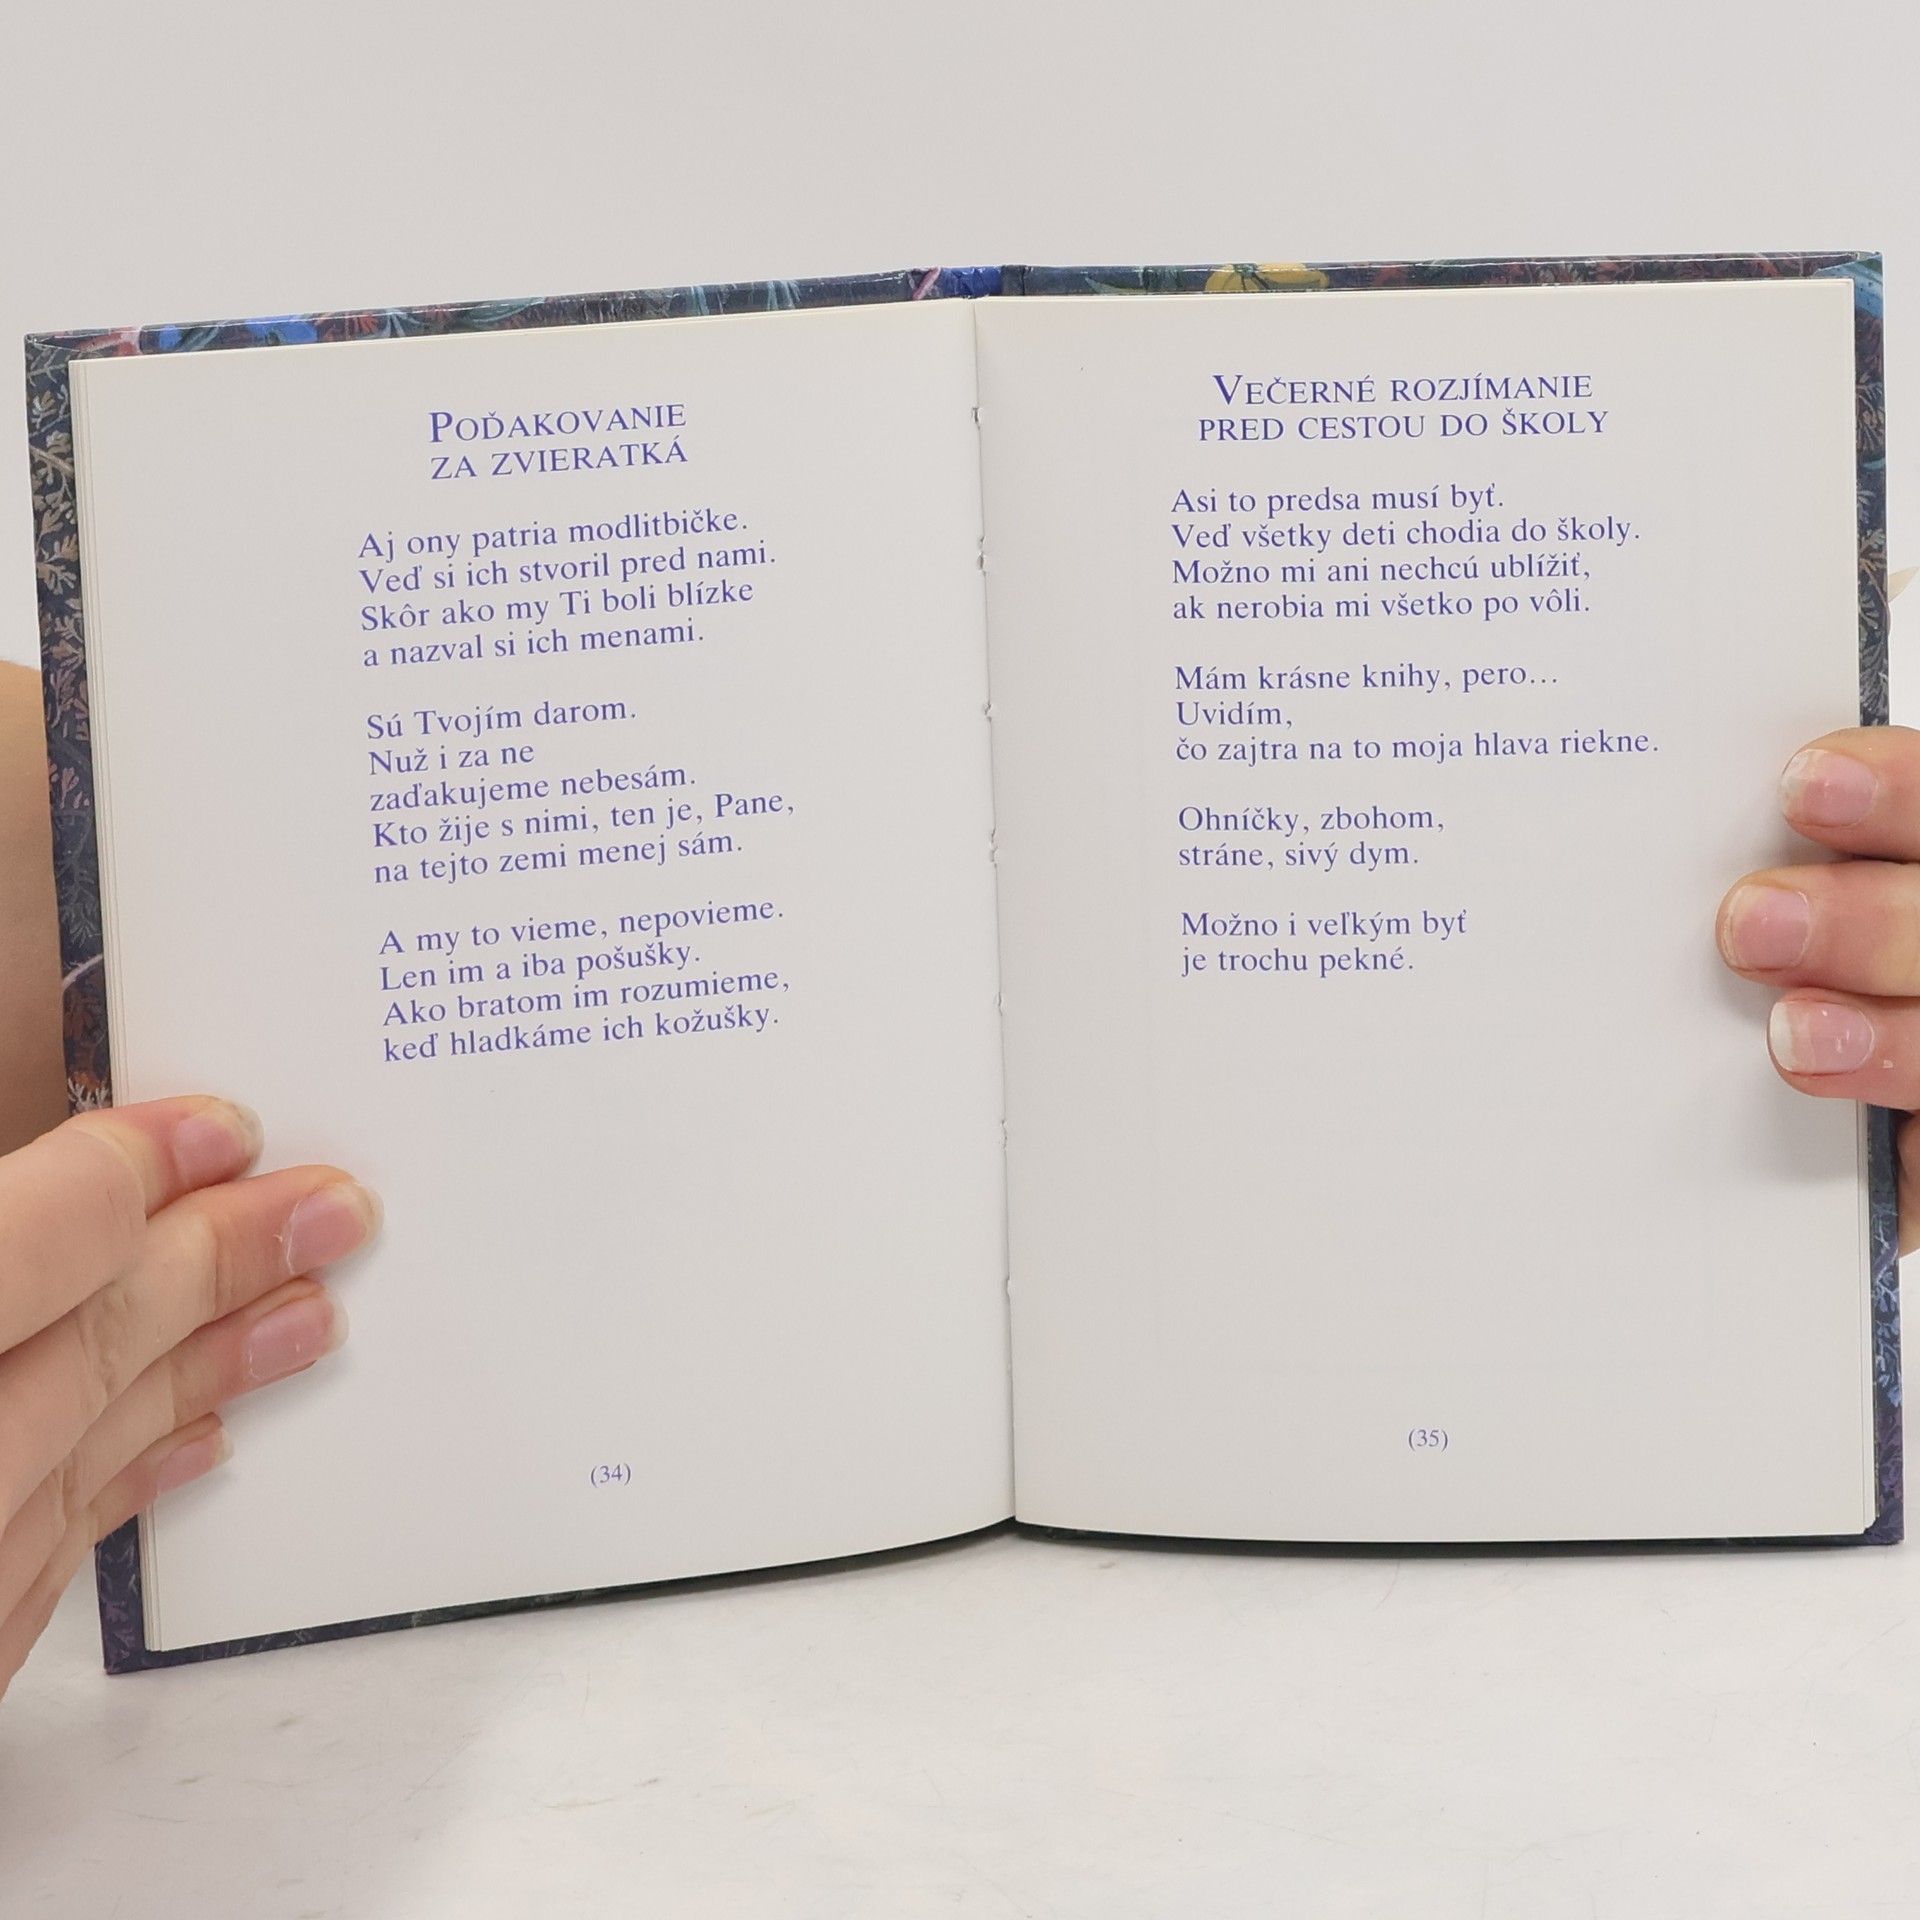 POĎAKOVANIE
ZA ZVIERATKÁ
Aj ony patria modlitbičke.
Veď si ich stvoril pred nami.
Skôr ako my Ti boli blízke
a nazval si ich menami.
Sú Tvojím darom.
Nuž i za ne
zaďakujeme nebesám.
Kto žije s nimi, ten je, Pane,
na tejto zemi menej sám.
A my to vieme, nepovieme.
Len im a iba pošušky.
Ako bratom im rozumieme,
keď hladkáme ich kožušky.
(34)
VEČERNÉ ROZJÍMANIE
PRED CESTOU DO ŠKOLY
Asi to predsa musí byť.
Veď všetky deti chodia do školy.
Možno mi ani nechcú ublížiť,
ak nerobia mi všetko po vôli.
Mám krásne knihy, pero...
Uvidím,
čo zajtra na to moja hlava riekne.
Ohníčky, zbohom,
stráne, sivý dym.
Možno i veľkým byť
je trochu pekné.
(35)